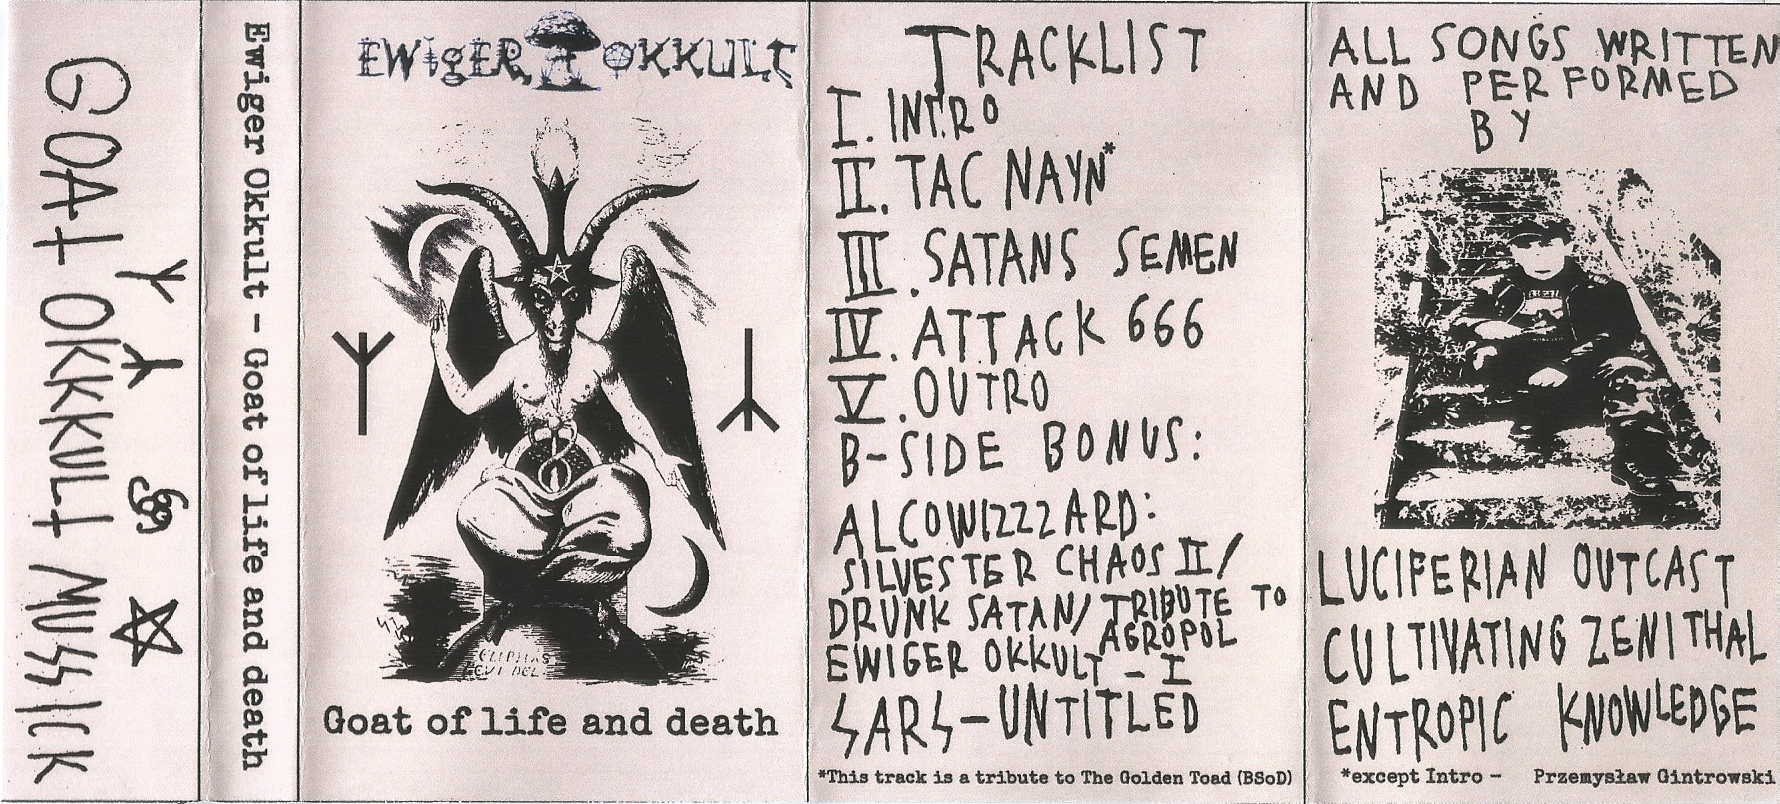 GOAT OKKKULT MUSSICK
Ewiger Okkult - Goat of life and death
EWigER OKKULT
ELIPHAS
LEVI DEL
Goat of life and death
TRACKLIST
I. INTRO
II. TAC NAYN*
III. SATANS SEMEN
IV. ATTACK 666
V. OUTRO
B-SIDE BONUS:
ALCOWIZZZARD:
SILVESTER CHAOS II/
DRUNK SATAN/TRIBUTE TO
AGROPOL
EWIGER OKKULT - I
SARS-UNTITLED
*This track is a tribute to The Golden Toad (BSoD)
ALL SONGS WRITTEN
AND PERFORMED
BY
LUCIFERIAN OUTCAST
CULTIVATING ZENITHAL
ENTROPIC KNOWLEDGE
*except Intro - Przemysław Gintrowski